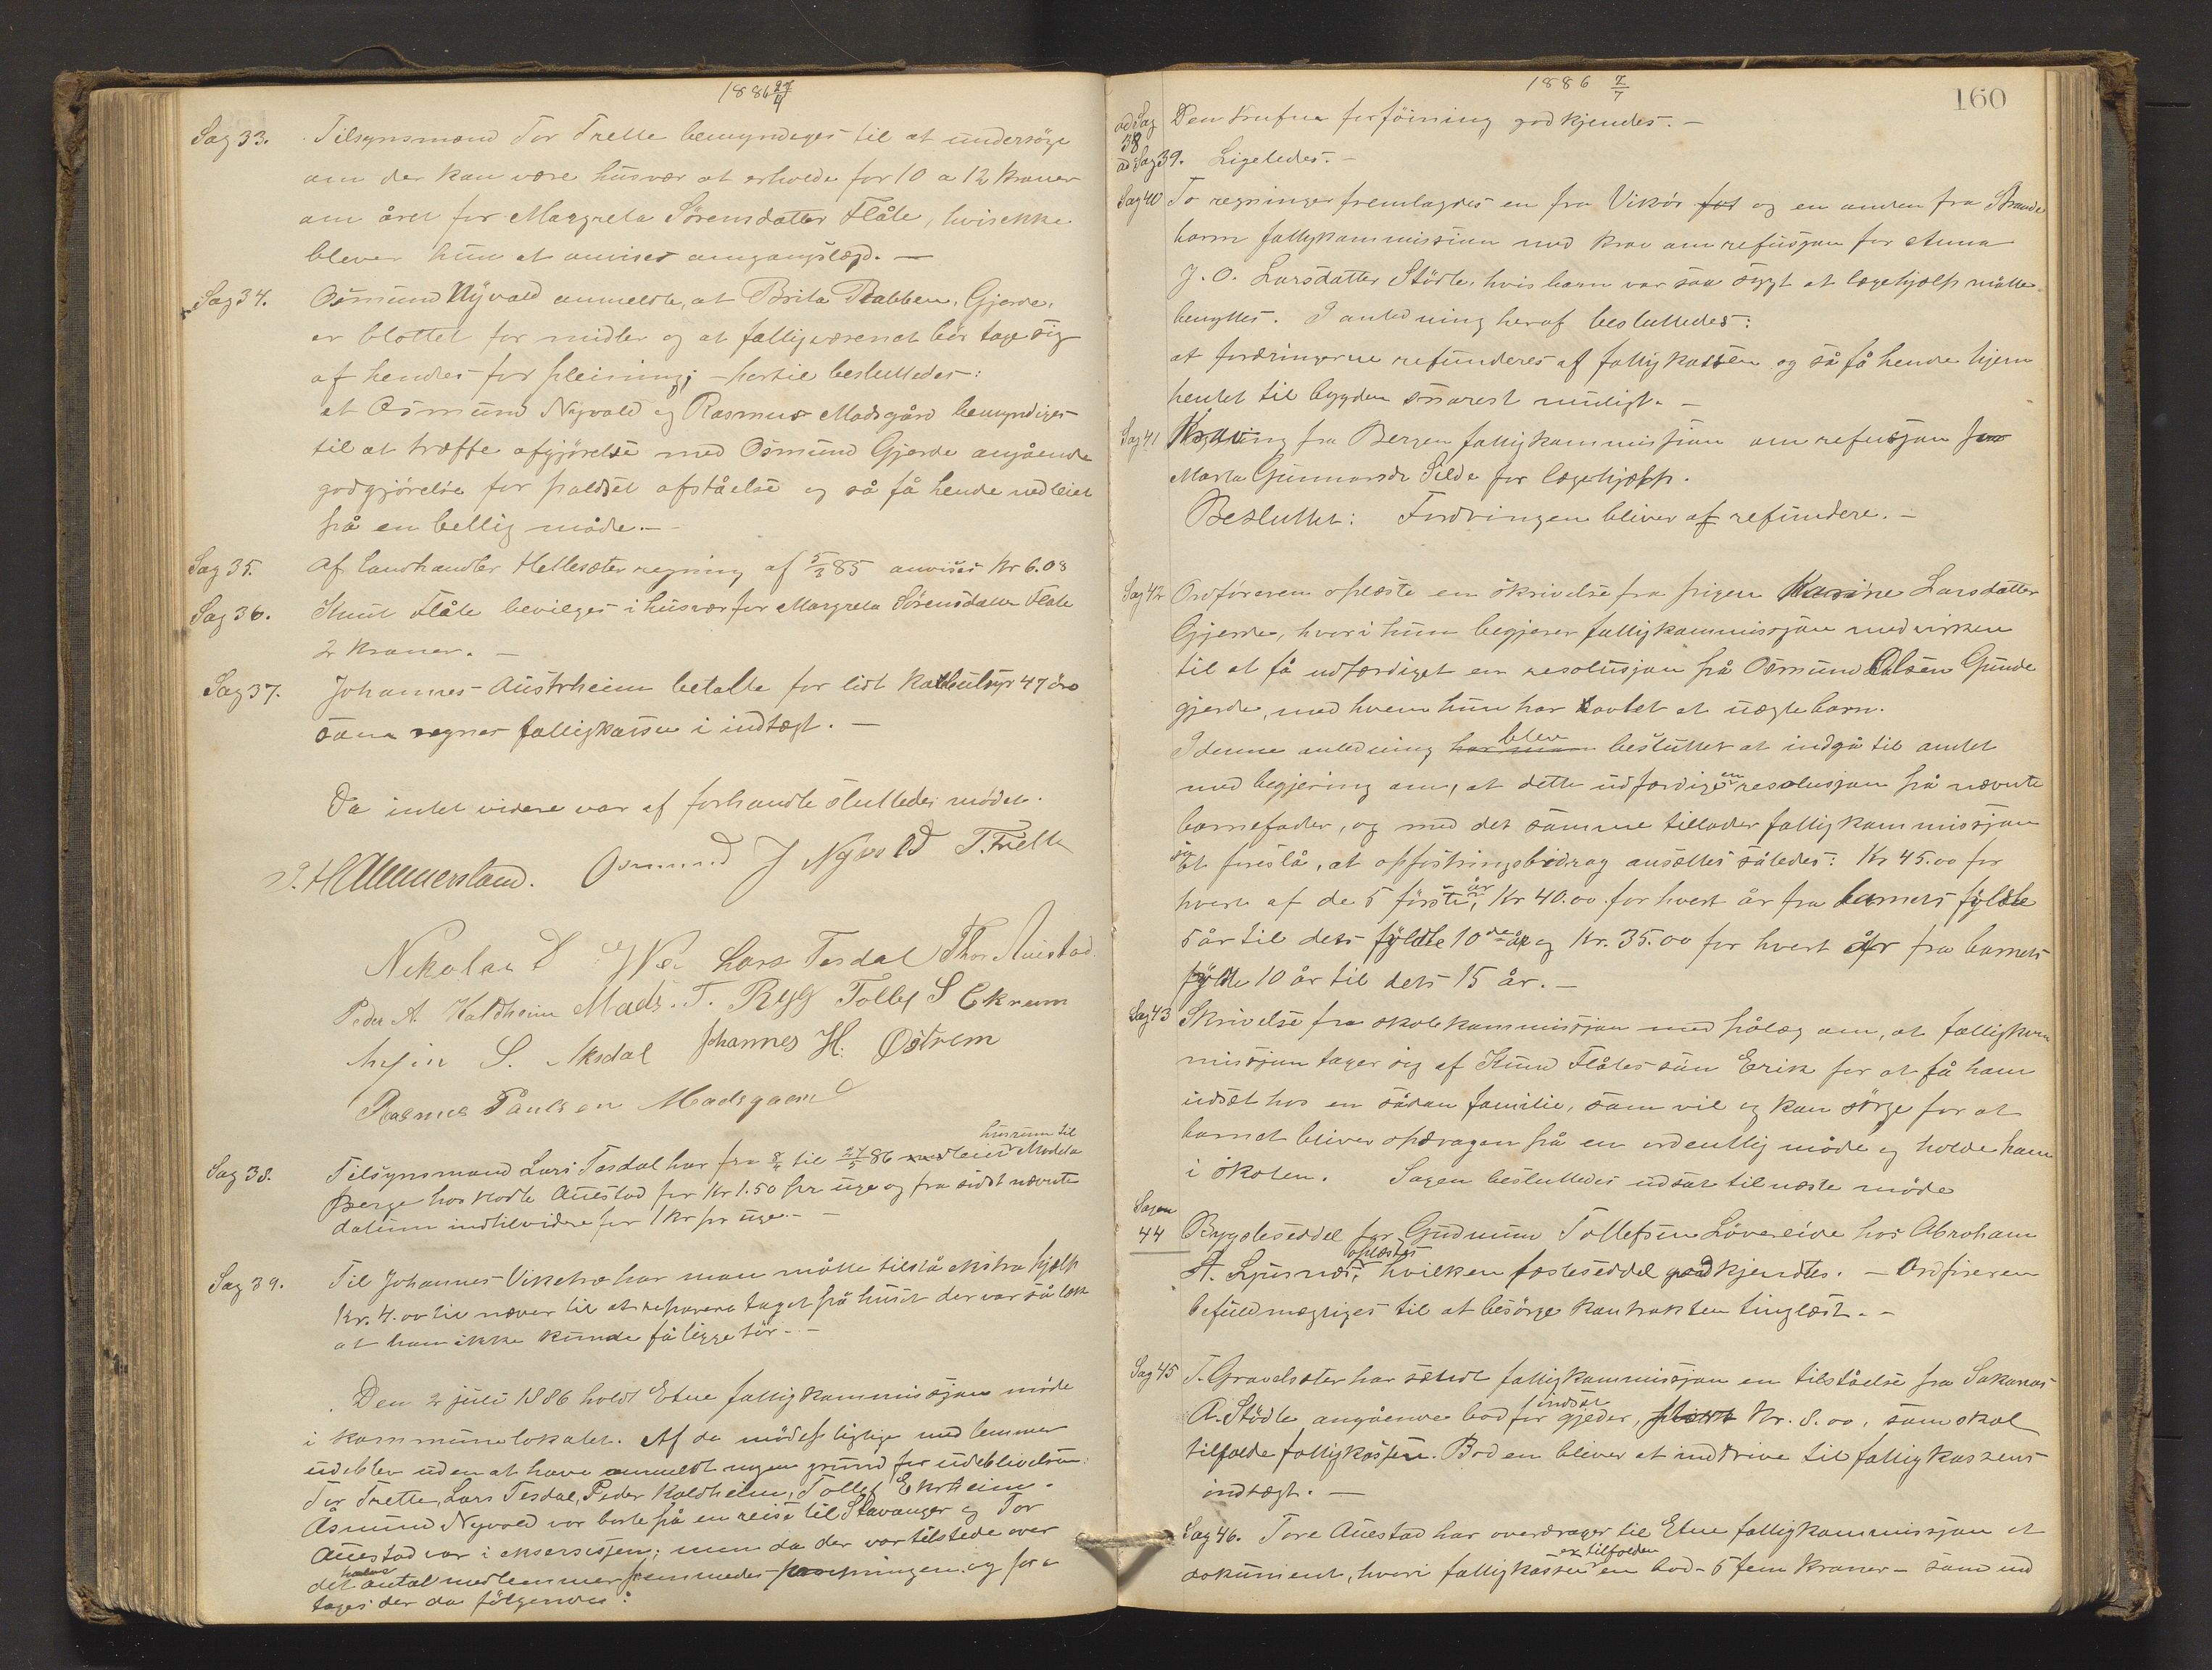 1886 27/4
Sag 33. Tilsynsmand Tor Trette bemyndiges til at undersøge
om der kan være husvær at erholde for 10 a 12 Kroner
om året for Margreta Sörensdatter Flåte, hvis ikke
blever hun at anvises omgangslægd. —
Sag 34. Osmund Nyvold anmeldte, at Brita Rabben, Gjerde,
er blottet for midler og at fattigvæsenet bör tage sig
af hendes forpleining; — hertil beslutledes:
at Osmund Nyvold og Rasmus Madsgård bemyndiges
til at træffe afgjörelse med Osmund Gjerde angående
godgjörelse for pladset afståelse og så få hende nedleiet
på en bellig måde. —
Sag 35. Af Landhandler Hellesæter regning af 5/3 85 anvises Kr 6.08
Sag 36. Knut Flåte bevilges i husvær for Margreta Sörensdatter Flåte
2 Kroner. —
Sag 37. Johannes Austrheim betalte for lidt 47 öre
som regnes fattigkassen i indtægt. —
Da intet videre var af forhandle sluttedes mödet.
Osmund J Nyvold T. Trette
Nikolai Lars Tesdal Thor Auestad
Peder A. Kaldheim Mads. T. Ryg Tollef S Ekrem
S. Aksdal Johannes H. Östrem
Rasmus Paulsen Madsgaard
husrum til
Sag 38. Tilsynsmand Lars Tesdal har fra til 27/5 86 leiet
Berge hos Auestad for Kr 1.50 pr uge og fra sidst nævnte
datum indtilvidere for 1 Kr pr uge. —
Sag 39. Til Johannes Viketræ har man måtte tilstå ekstra hjælp
Kr. 4.00 til næver til at reparere taget på huset der var så læk
at han ikke kunde få ligge tör. —
Den 2 juli 1886 holdt Etne fattigkommissjon möde
i kommunelokalet. Af de mödepligtige medlemmer
udeblev uden at have anmeldt nogen grund for udeblivelsen:
Tor Trette, Lars Tesdal, Peder Kaldheim, Tollef Ekrheim.
Åsmund Nyvold var borte på en reise til Stavanger og Tor
Auestad var i eksersisjen; men da der var tilstede over
halve
det antal medlemmer fremmedes forretningen og for a
tages der da fölgende:
1886 2/7
160
ad Sag 38 Den trufne forföining godkjendes. —
ad Sag 39. Ligeledes. —
Sag 40 To regninger fremlagdes en fra Vikör for og en anden fra Strande
barm fattigkommission med krav om refusjon for Anna
J. O. Larsdatter Stödle, hvis barn var saa sygt at lægehjælp måtte
benyttes. I anledning heraf beslutledes:
at fordringerne refunderes af fattigkassen og så få hende hjem
hentet til bygden snarest muligt. —
Sag 41 Krav fra Bergen fattigkommission om refusjon for
Marta Gunnarsdr Silde for lægehjælp.
Besluttet: Fordringen bliver af refundere. —
Sag 42 Ordföreren oplæste en skrivelse fra pigen Karine Larsdatter
Gjerde, hvori hun begjerer fattigkommissjon medvirken
til at få udfærdiget en resolusjon på Osmund Olsen Gunde
gjerde, med hvem hun har avlet et uægte barn.
blev
I denne anledning besluttet at indgå til amtet
en
med begjering om, at dette udfærdiger resolusjon på nævnte
barnefader, og med det samme tillader fattigkommissjon
sig
at foreslå, at opfostringsbidrag ansættes således: Kr 45.00 for
år
hvert af de 5 förste, Kr 40.00 for hvert år fra barnets fyldte
5 år til dets fyldte 10de år og Kr. 35.00 for hvert år fra barnets
fyldte 10 år til dets 15 år. —
Sag 43 Skrivelse fra skolekommissjon med pålæg om, at fattigkom
missjon tager sig af Knud Flåtes sön Erik for at få ham
indsat hos en sådan familie, som vil og kan sörge for at
barnet bliver opdragen på en ordentlig måde og holde ham
i skolen. Sagen beslutledes udsat til næste möde
Sagen 44 Bygdleseddel for Gudmun Tollefsen Lövereide hos Abraham
oplæstes
A. Ljusnæs, hvilken fæsteseddel godkjendtes. — Ordföreren
befuldmægtiges til at besörge kontrakten tinglæst. —
Sag 45 T. Gravelsæter har sendt fattigkommissjon en tilståelse fra Sakarias
indsat
A. Stödle angående bod for gjeder, Kr. 8.00, som skal
tilfalde fattigkassen. Boden bliver at inddrive til fattigkassens
indtægt. —
Sag 46. Tore Auestad har overdrager til Etne fattigkommissjon et
er tilfalden
dokument, hvori fattigkassen en bod — 5 fem Kroner — som ind